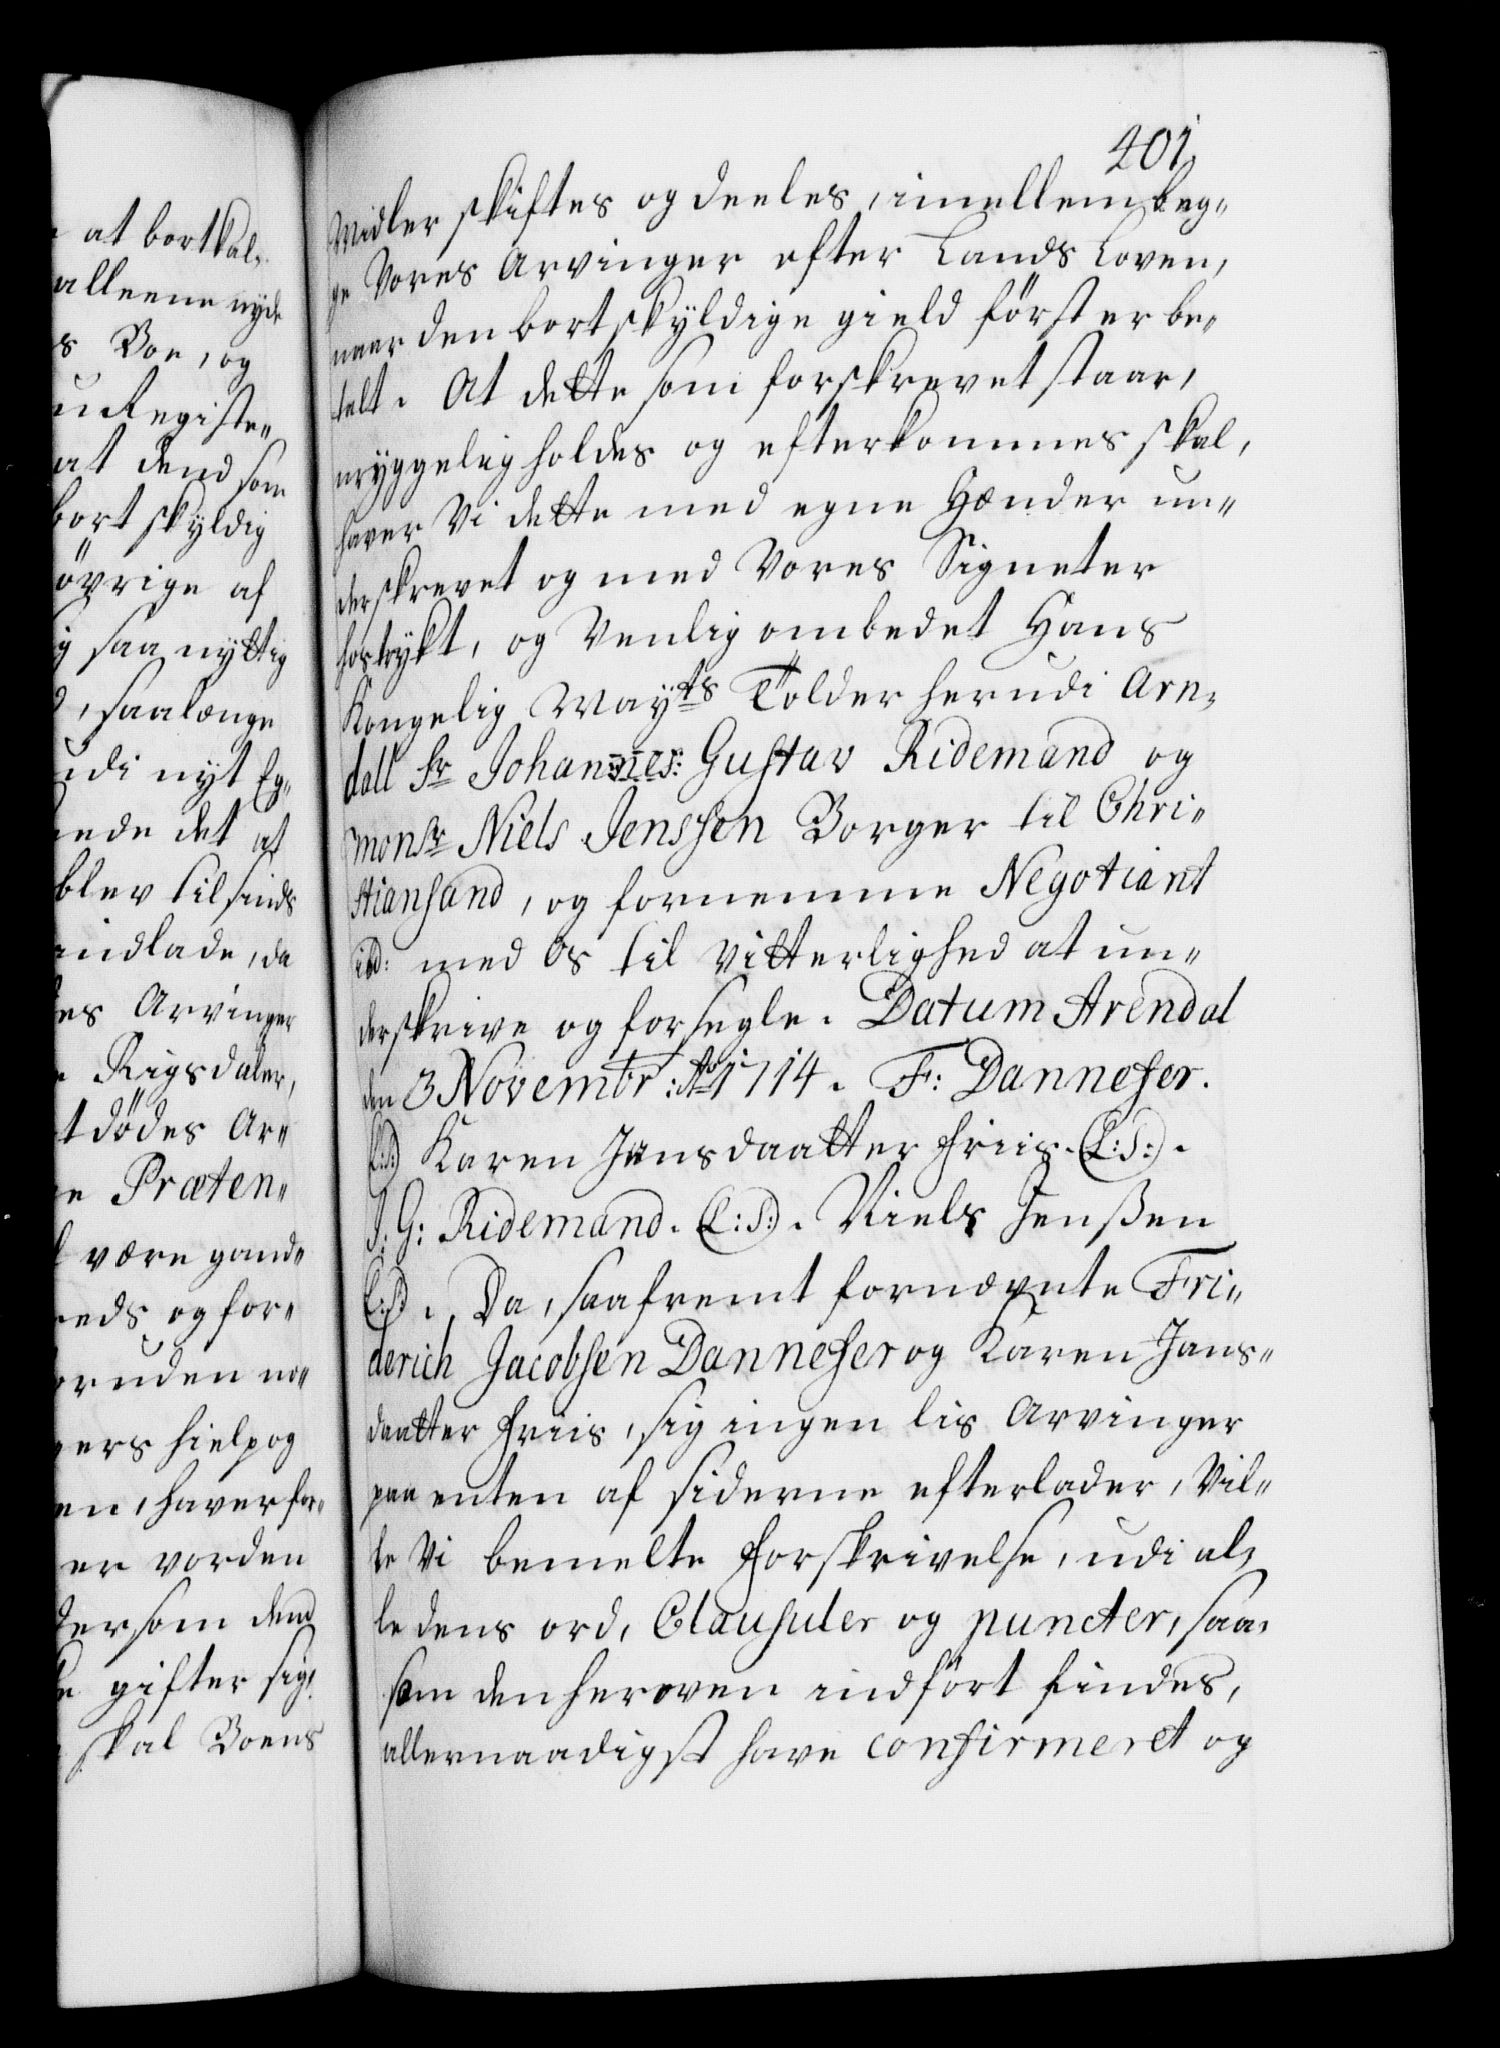 401
at bortskal„
alleene nyde
s Boe, og
u Registe„
at dend som
bort skyldig
övrige af
saa nyttig
, saalænge
udi nyt Eg„
ede det at
blev til sinds
indlade, da
es Arvinger
Rigsdaler,
t dödes Ar„
e Præten„
være gand„
eds og for„
ruden no„
ers hielp og
en, haver for„
er vorden
dersom dend
gifter sig,
skal Boens
Midler skiftes og deeles, imellem beg„
ge Vores Arvinger efter Lands Loven,
naar den bortskyldige gield först er be„
talt. At dette som forskrevet staar,
uryggelig holdes og efterkommes skal,
haver Vi dette med egne Hænder un„
derskrevet og med Vores Signeter
hostrykt, og Venlig ombedet Hans
Kongelig Mayts Tolder herudi Aren„
dall Sr Johannes: Gustav Ridemand og
Monsr Niels Jenssen Borger til Chri„
stiansand, og fornemme Negotiant
ibd: med Os til Vitterlighed at un„
derskrive og forsegle. Datum Arendal
den 3 Novembr: Ao 1714. F: Dannefer.
(L:S:) Karen Jansdaatter Friis. (L:S:).
J: G: Ridemand. (L:S:). Niels Jenßen
(L:S:). Da, saafremt fornævnte Fri„
derich Jacobsen Dannefer og Karen Jans„
daatter Friis, sig ingen lifs Arvinger
paa enten af siderne efterlader, Vil„
le Vi bemelte Forskrivelse, udi al„
le dens ord, Clausuler og puncter, saa„
som den heroven indfört findes,
allernaadigst have confirmeret og